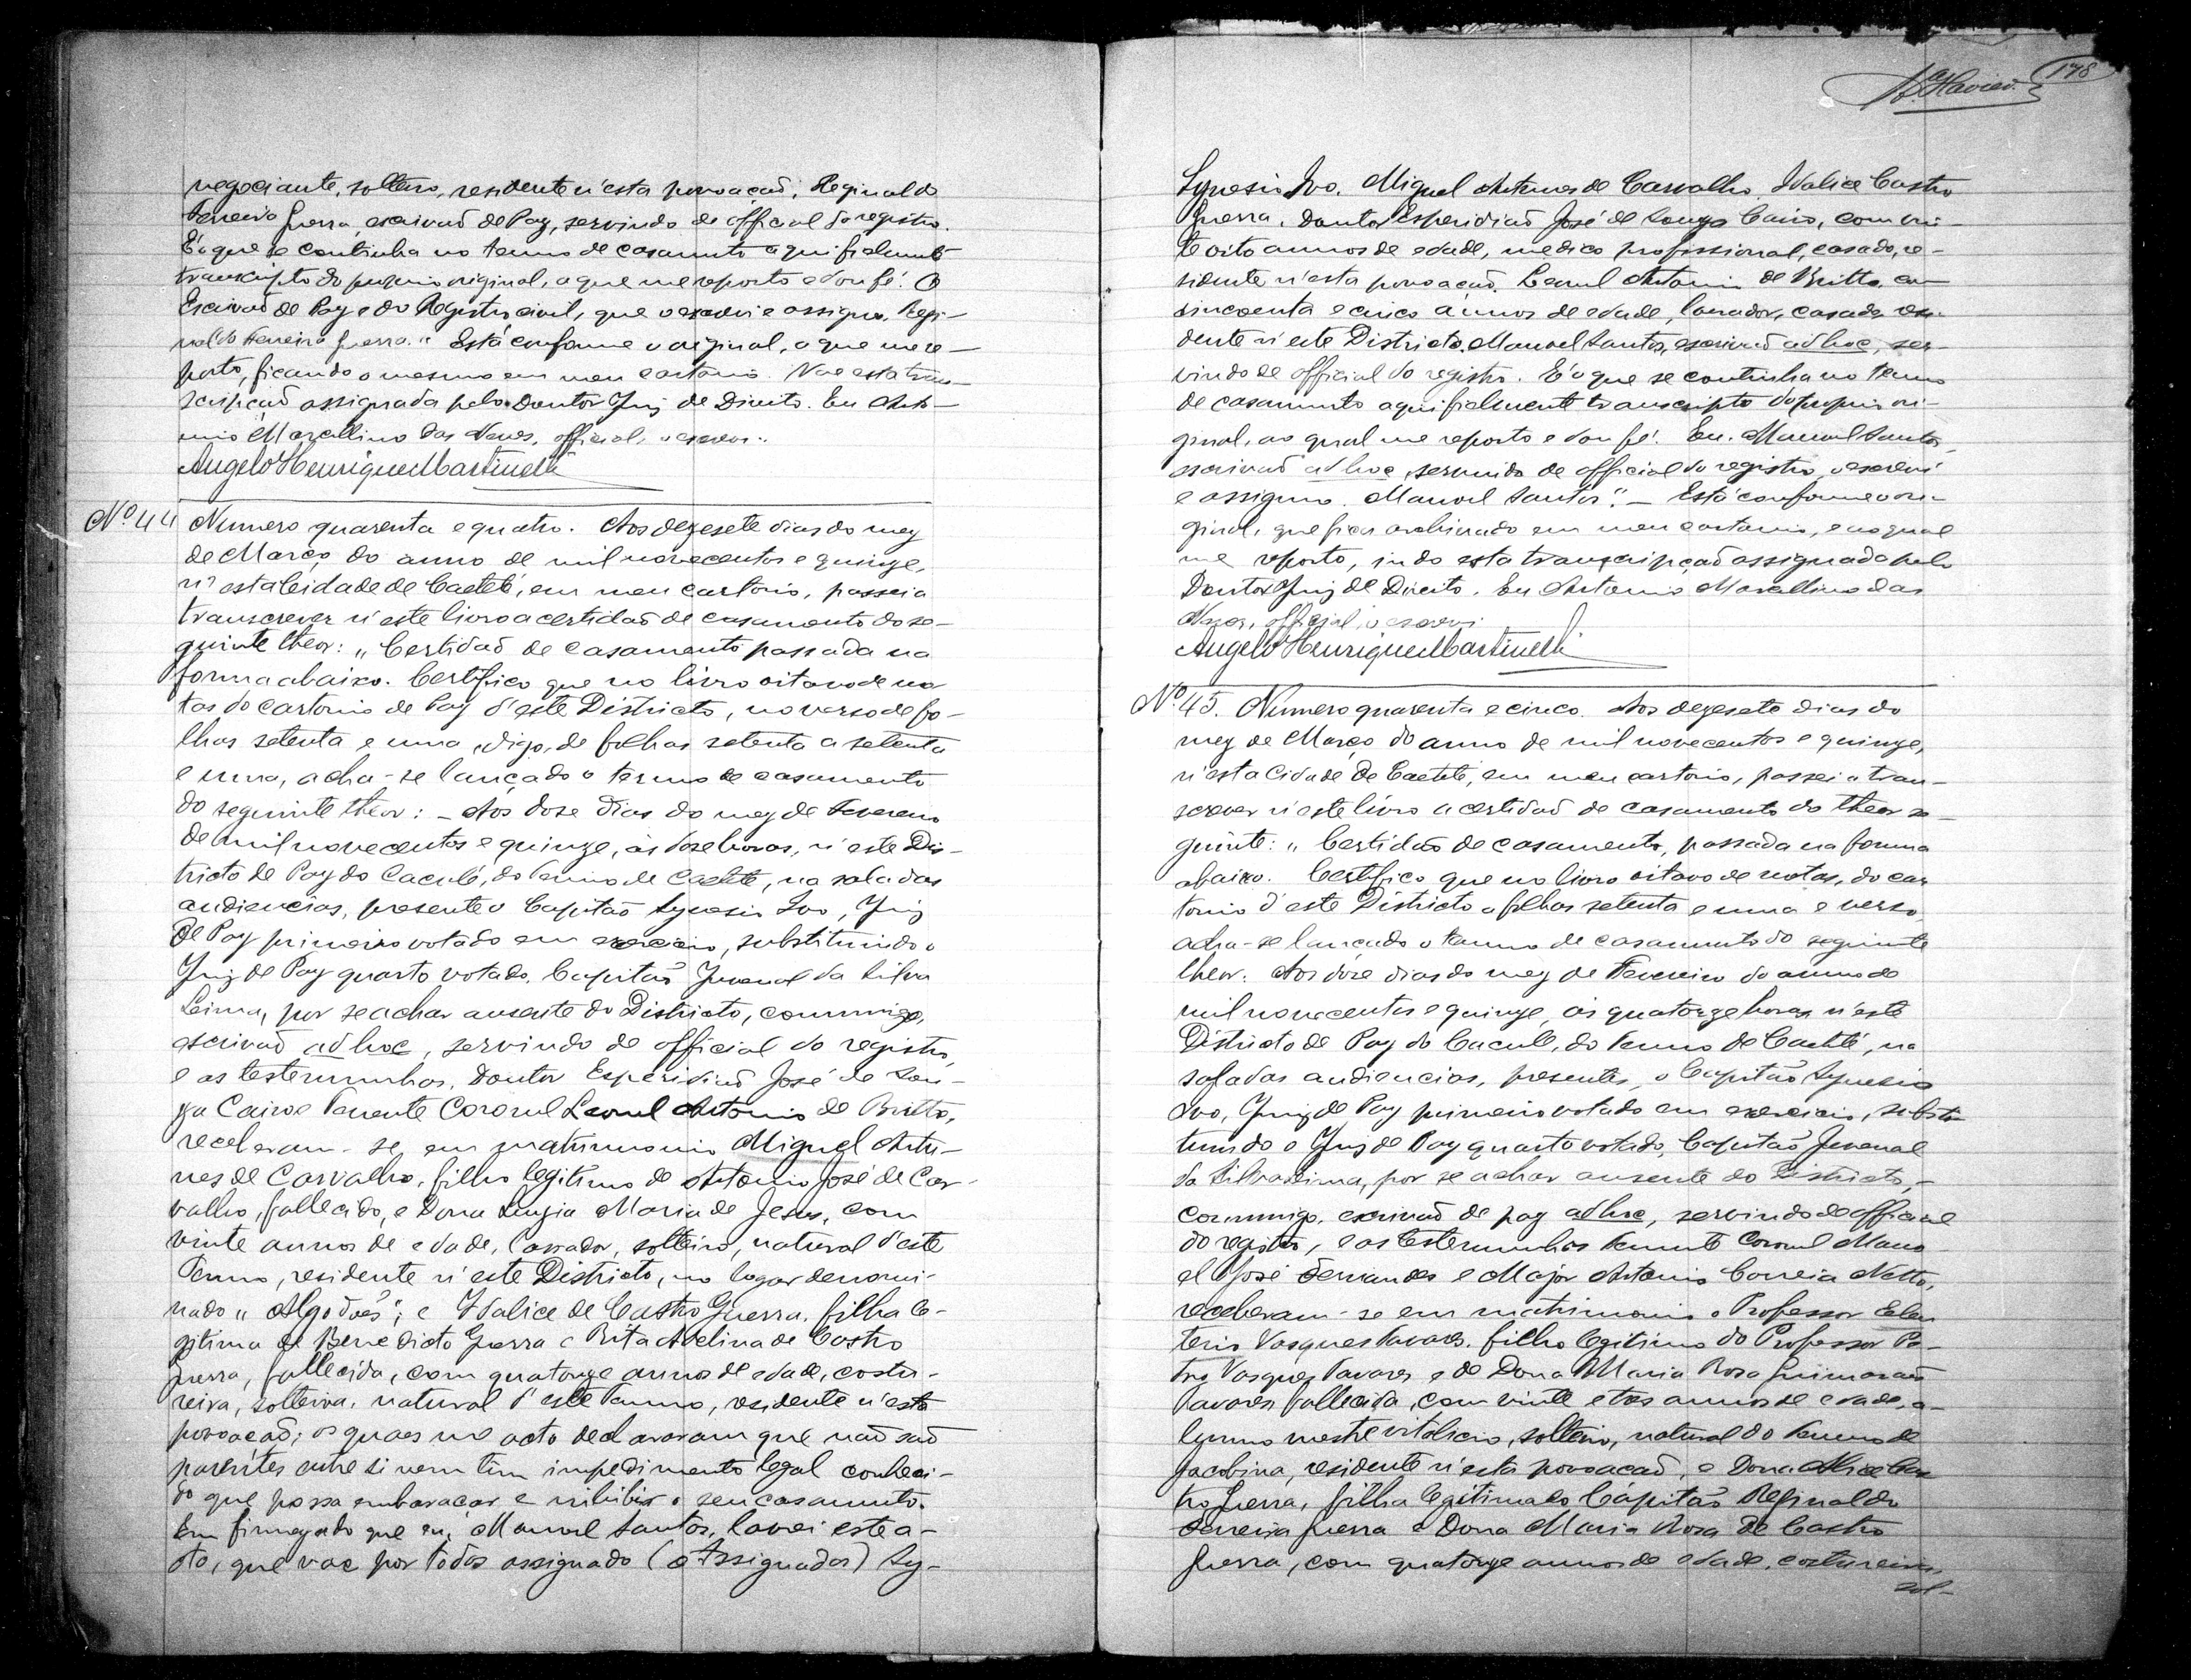 negociante, solteiro, residente n'esta povoação, Reginaldo
Ferreira Guerra, escrivão de Paz, servindo de official do registro.
É o que se continha no termo de casamento aqui fielmente
transcripto do proprio original, a que me reporto e dou fé. O
Escrivão de Paz e do Registro civil, que o escrevi e assigno. Regi-
naldo Ferreira Guerra." Está conforme o original, a que me re-
porto, ficando o mesmo em meu cartorio. Vae esta trans-
cripção assignada pelo Doutor Juiz de Direito. Eu Anto-
nio Marcellino das Neves, official, o escrevi.
Angelo Henrique Martinelli
Nº 44 Numero quarenta e quatro. Aos dezesete dias do mez
de Março do anno de mil novecentos e quinze,
n'esta Cidade de Caeteté, em meu cartorio, passei a
transcrever n'este livro a certidão de casamento do se-
guinte theor: "Certidão de casamento passada na
forma abaixo. Certifico que no livro oitavo de no-
tas do cartorio de Paz d'este Districto, no verso de fo-
lhas setenta e uma, digo, de folhas setenta a setenta
e uma, acha-se lançado o termo de casamento
do seguinte theor: - Aos dose dias do mez de Fevereiro
de mil novecentos e quinze, ás dose horas, n'este Dis-
tricto de Paz do Caculé, do Termo de Caeteté, na sala das
audiencias, presente o Capitão Synesio Ivo, Juiz
de Paz primeiro votado em exercicio, substituindo o
Juiz de Paz quarto votado, Capitão Juvenal da Silva
Leima, por se achar ausente do Districto, commigo,
escrivão ad hoc, servindo de official do registro,
e as testemunhas, Doutor Esperidião José de Sou-
za Cairo e Tenente Coronel Leonel Antonio de Britto,
receberam-se em matrimonio Miguel Antu-
nes de Carvalho, filho legitimo de Antonio José de Car-
valho, fallecido, e Dona Luzia Maria de Jesus, com
vinte annos de edade, lavrador, solteiro, natural d'este
Termo, residente n'este Districto, no logar denomi-
nado "Algodões"; e Idalice de Castro Guerra, filha le-
gitima de Benedicto Guerra e Rita Adelina de Castro
Guerra, fallecida, com quatorze annos de edade, costu-
reira, solteira, natural d'este Termo, residente n'esta
povoação; os quaes no acto declararam que não são
parentes entre si nem têm impedimento legal conheci-
do que possa embaraçar e inhibir o seu casamento.
Em firmeza do que eu, Manoel Santos, lavrei este a-
cto, que vae por todos assignado (Assignados) Sy-
178
Synesio Ivo. Miguel Antunes de Carvalho. Idalice Castro
Guerra. Doutor Esperidião José de Souza Cairo, com vin-
te oito annos de edade, medico profissional, casado, re-
sidente n'esta povoação. Leonel Antonio de Britto, com
sincoenta e cinco annos de edade, lavrador, casado, resi-
dente n'este Districto. Manoel Santos, escrivão ad hoc, ser-
vindo de official do registro. É o que se continha no termo
de casamento aqui fielmente transcripto do proprio ori-
ginal, ao qual me reporto e dou fé. Eu, Manoel Santos,
escrivão ad hoc, servindo de official do registro, o escrevi
e assigno. Manoel Santos." - Está conforme o ori-
ginal, que fica archivado em meu cartorio, e ao qual
me reporto, indo esta transcripção assignada pelo
Doutor Juiz de Direito. Eu Antonio Marcellino das
Neves, official, o escrevi.
Angelo Henrique Martinelli
Nº 45. Numero quarenta e cinco. Aos dezesete dias do
mez de Março do anno de mil novecentos e quinze,
n'esta Cidade de Caeteté, em meu cartorio, passei a tran-
screver n'este livro a certidão de casamento do theor se-
guinte: "Certidão de casamento, passada na forma
abaixo. Certifico que no livro oitavo de notas, do car-
torio d'este Districto a folhas setenta e uma e verso,
acha-se lançado o termo de casamento do seguinte
theor. Aos dose dias do mez de Fevereiro do anno de
mil novecentos e quinze, ás quatorze horas, n'este
Districto de Paz do Caculé, do Termo de Caeteté, na
sala das audiencias, presentes, o Capitão Synesio
Ivo, Juiz de Paz primeiro votado em exercicio, substi-
tuindo o Juiz de Paz quarto votado, Capitão Juvenal
da Silva Lima, por se achar ausente do Districto, -
commigo, escrivão de paz ad hoc, servindo de official
do registro, e as testemunhas Tenente Coronel Mano-
el José Fernandes e Major Antonio Correia Netto,
receberam-se em matrimonio o Professor Eleu-
terio Vasques Tavares, filho legitimo do Professor Pe-
dro Vasques Tavares e de Dona Maria Rosa Guimarães
Tavares, fallecida, com vinte e tres annos de edade, a-
lumno mestre vitalicio, solteiro, natural do Termo de
Jacobina, residente n'esta povoação, e Dona Alice Cas-
tro Guerra, filha legitima do Capitão Reginaldo
Ferreira Guerra e Dona Maria Rosa de Castro
Guerra, com quatorze annos de edade, costureira,
sol-